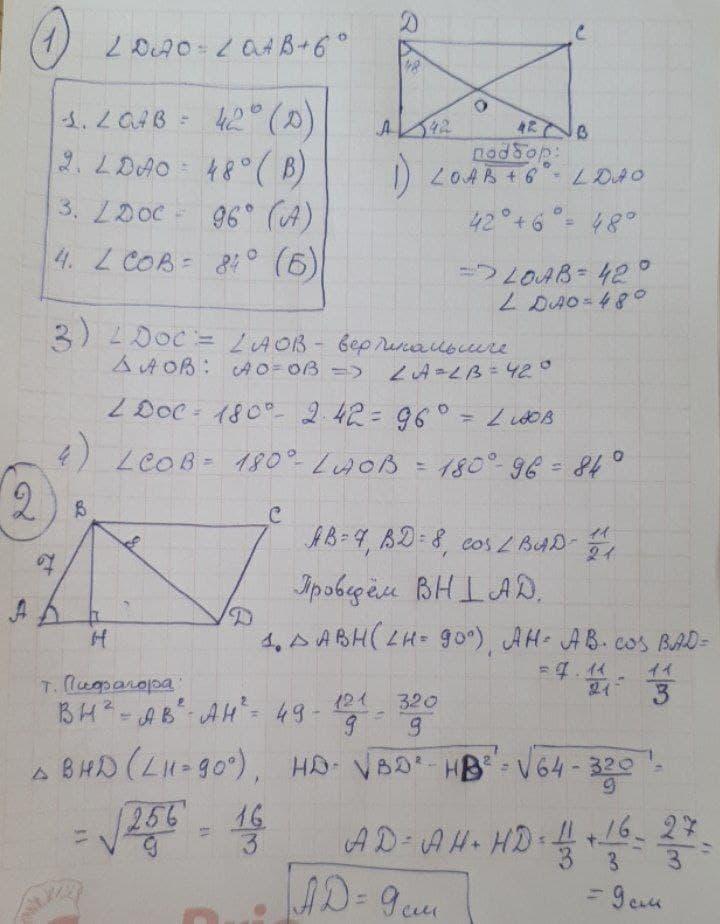 1
∠DAO = ∠OAB + 6°
D
C
48
O
A
42
42
B
1. ∠OAB = 42° (Д)
2. ∠DAO = 48° (В)
3. ∠DOC = 96° (А)
4. ∠COB = 84° (Б)
подбор:
1) ∠OAB + 6° = ∠DAO
42° + 6° = 48°
=> ∠OAB = 42°
∠DAO = 48°
3) ∠DOC = ∠AOB - вертикальные
△AOB: AO = OB => ∠A = ∠B = 42°
∠DOC = 180° - 2·42 = 96° = ∠AOB
4) ∠COB = 180° - ∠AOB = 180° - 96 = 84°
2
B
C
7
8
A
H
D
AB = 7, BD = 8, cos∠BAD = 11/21
Проведём BH ⊥ AD.
1. △ABH (∠H = 90°), AH = AB · cos BAD =
= 7 · 11/21 = 11/3
т. Пифагора:
BH² = AB² - AH² = 49 - 121/9 = 320/9
△BHD (∠H = 90°), HD = √(BD² - HB²) = √(64 - 320/9) =
= √(256/9) = 16/3
AD = AH + HD = 11/3 + 16/3 = 27/3 =
= 9 см
AD = 9 см